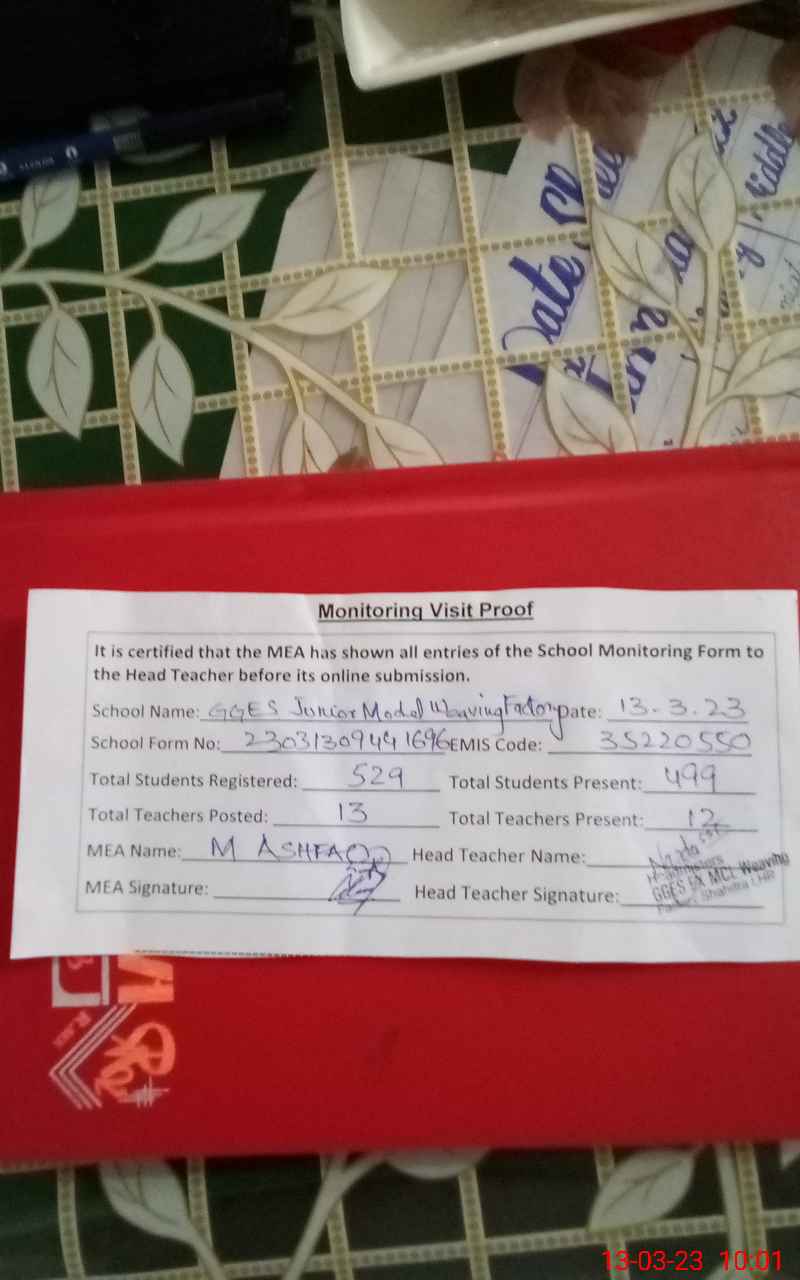 Date
Monitoring Visit Proof
It is certified that the MEA has shown all entries of the School Monitoring Form to
the Head Teacher before its online submission.
School Name: GGES Junior Model Weaving Factory Date: 13-3-23
School Form No: EMIS Code: 35220550
Total Students Registered: 529 Total Students Present: 499
Total Teachers Posted: 13 Total Teachers Present: 12
MEA Name: M ASHFAQ Head Teacher Name:
MEA Signature: Head Teacher Signature:
GGES MCL Weaving
Shahdra LHR
13-03-23 10:01